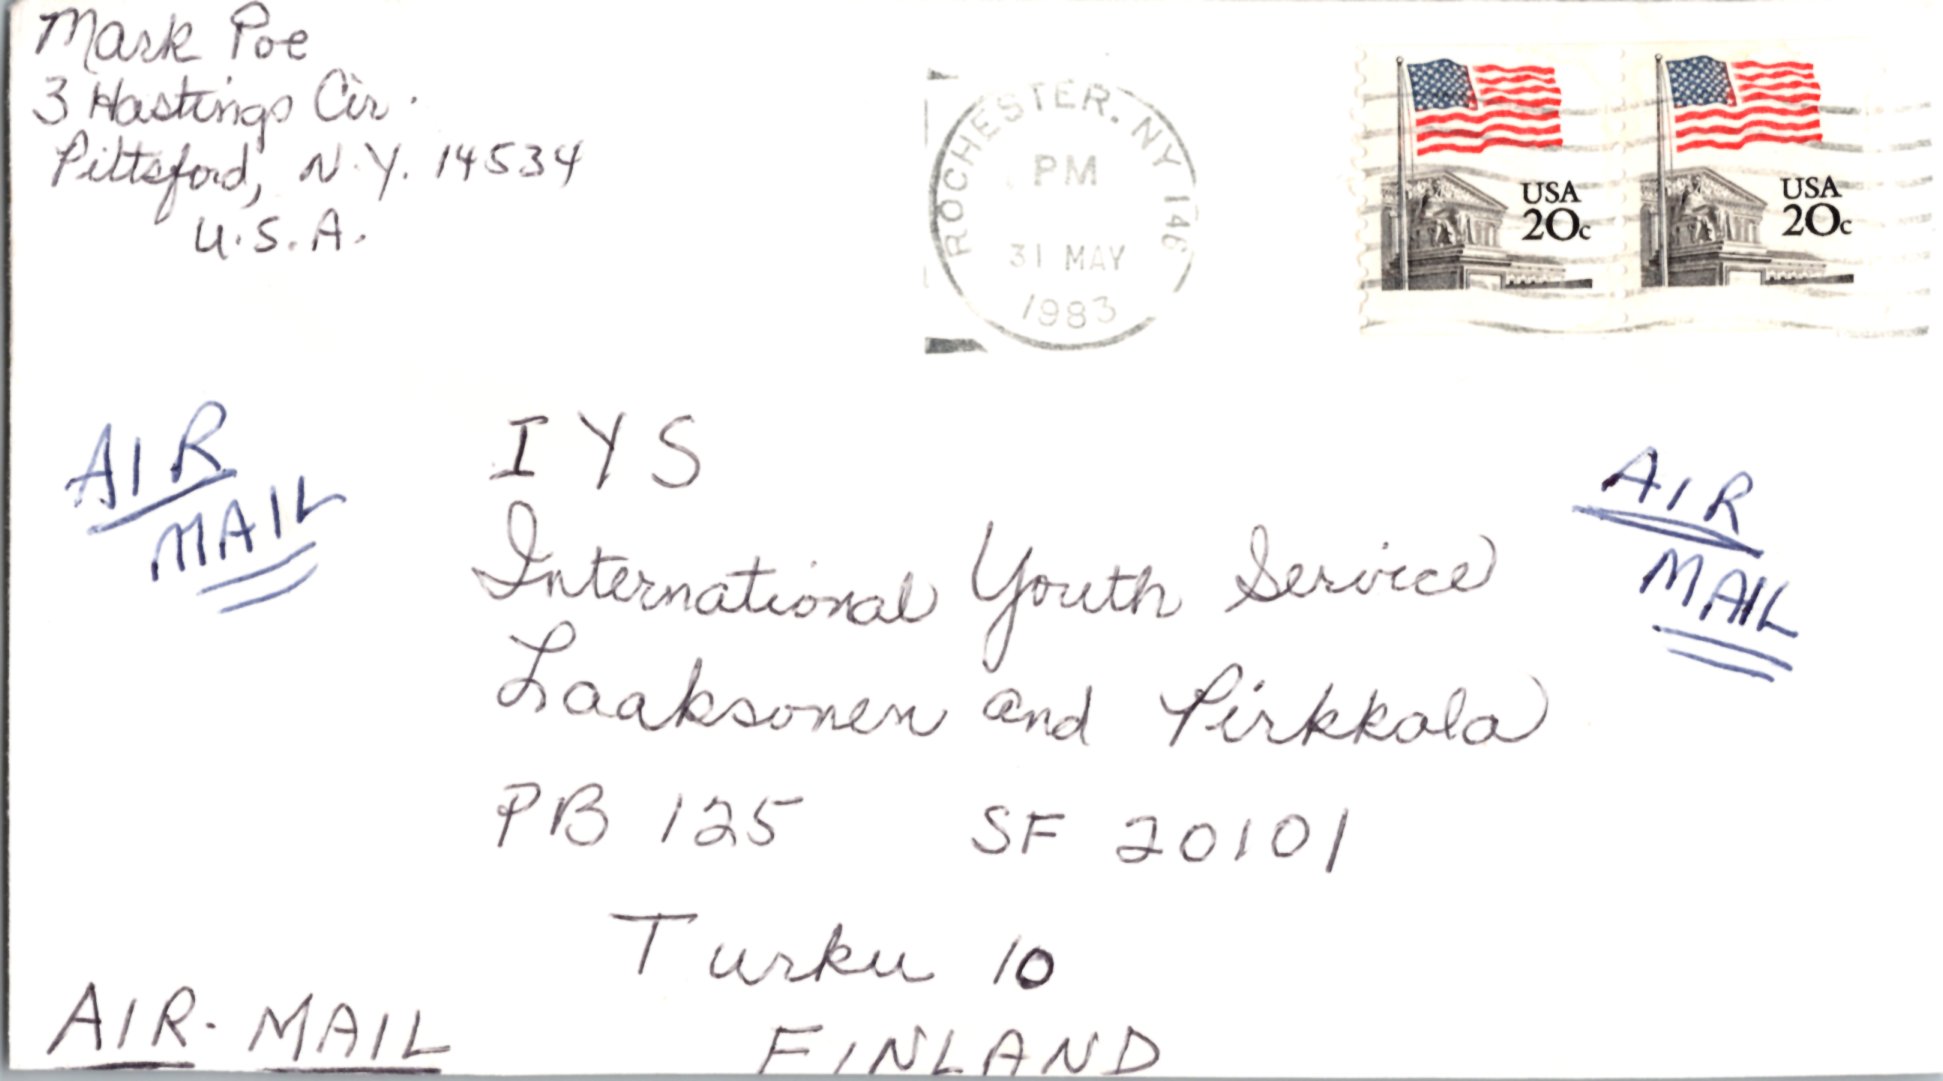 Mark Poe
3 Hastings Cir.
Pittsford, N.Y. 14534
U.S.A.
ROCHESTER, NY 146
PM
31 MAY
1983
USA
20c
USA
20c
AIR
MAIL
IYS
International Youth Service
Laaksonen and Pirkkala
PB 125 SF 20101
Turku 10
FINLAND
AIR
MAIL
AIR. MAIL